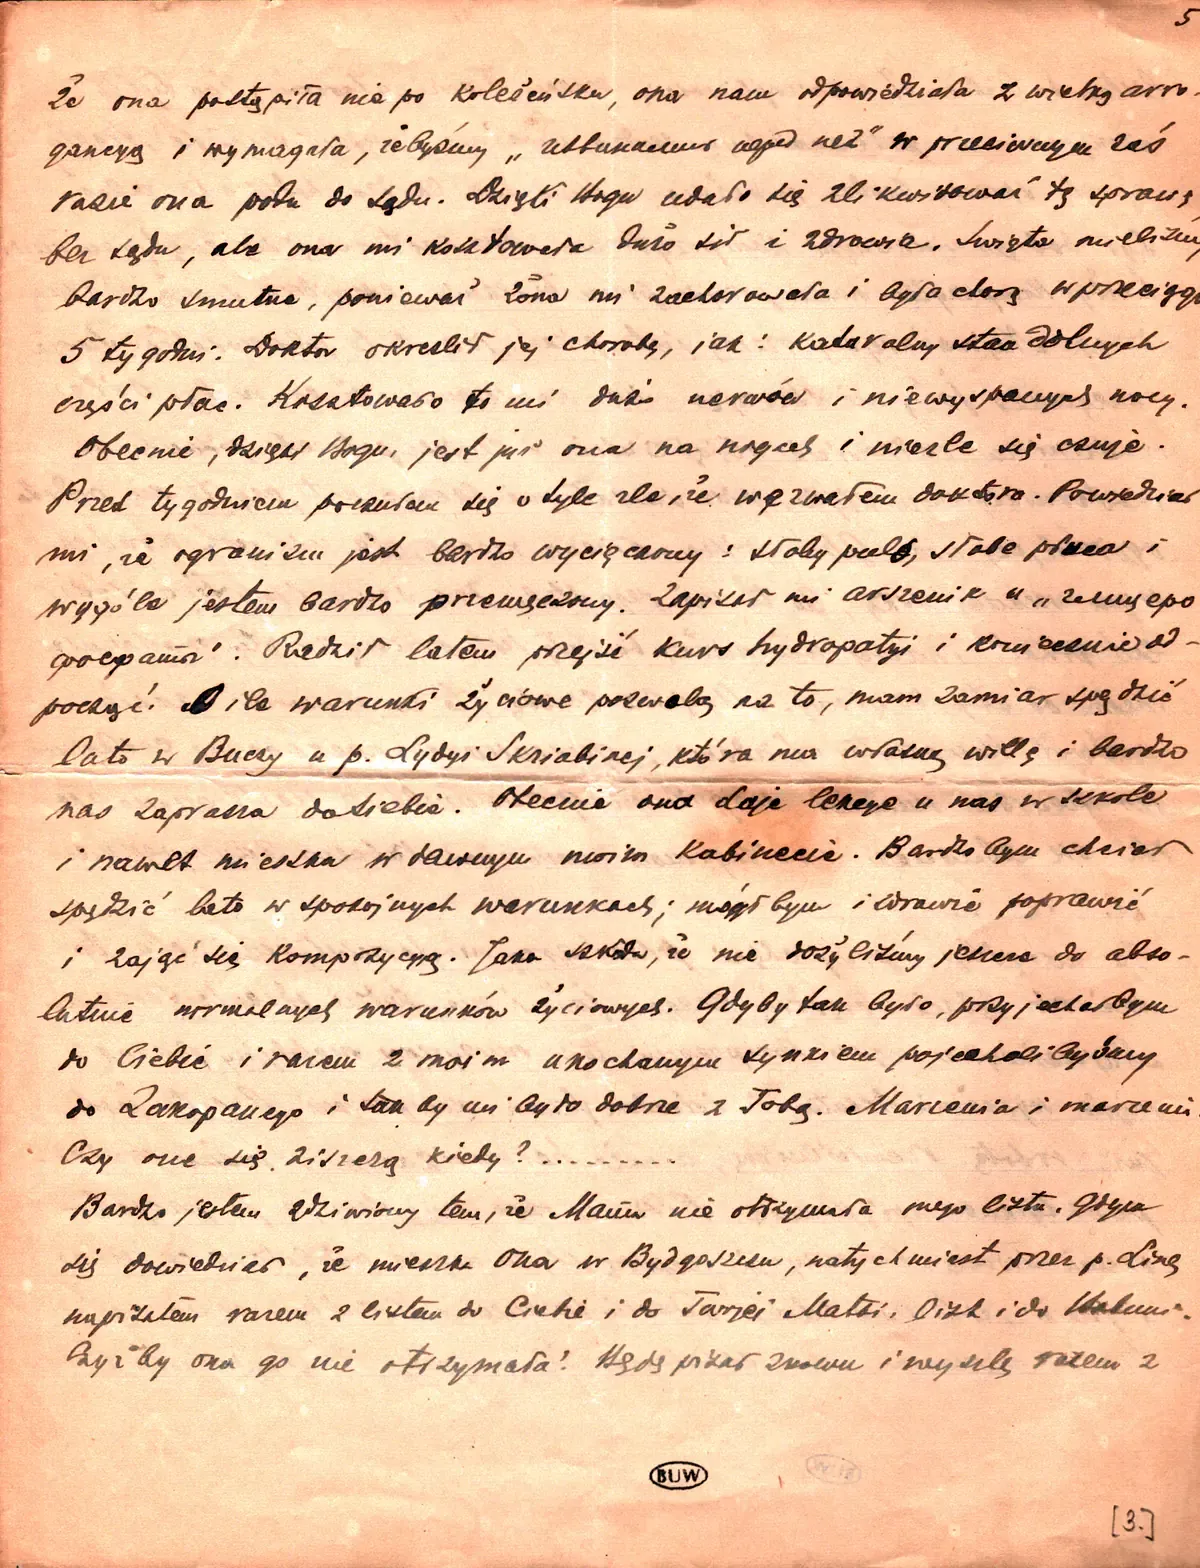 5
że ona postąpiła nie po koleżeńsku, ona nam odpowiedziała z wielką arro-
gancyą i wymagała, żebyśmy „ перед неё" w przeciwnym zaś
razie ona poda do sądu. Dzięki Bogu udało się zlikwidować tę sprawę
bez sądu, ale ona mi kosztowała dużo sił i zdrowia. Święta mieliśmy
bardzo smutne, ponieważ żona mi zachorowała i była chorą w przeciągu
5 tygodni. Doktor określił jej chorobę, jak: kataralny stan dolnych
części płuc. Kosztowało to mi dużo nerwów i niewyspanych nocy.
Obecnie, dzięki Bogu, jest już ona na nogach i nieźle się czuje.
Przed tygodniem poczułem się o tyle źle, że wezwałem doktora. Powiedział
mi, że ogranizm jest bardzo wycięczony: słaby puls, słabe płuca i
wogóle jestem bardzo przemęczony. Zapisał mi arszenik i „глицеро
фосфаты". Radził latem przejść kurs hydropatyi i koniecznie od-
począć. O ile warunki życiowe pozwolą na to, mam zamiar spędzić
lato w Buczy u p. Lydyi Skriabinej, która ma własną willę i bardzo
nas zaprasza do siebie. Obecnie ona daje lekcye u nas w szkole
i nawet mieszka w dawnym moim kabinecie. Bardzo bym chciał
spędzić lato w spokojnych warunkach; mógłbym i zdrowie poprawić
i zająć się kompozycyą. Jaka szkoda, że nie dożyliśmy jeszcze do abso-
lutnie normalnych warunków życiowych. Gdyby tak było, przyjechałbym
do Ciebie i razem z moim ukochanym synkiem pojechalibyśmy
do Zakopanego i tak by mi było dobrze z Tobą. Marzenia i marzenia.
Czy one się ziszczą kiedy? .........
Bardzo jestem zdziwiony tem, że Mama nie otrzymała mego listu. Gdym
się dowiedział, że mieszka Ona w Bydgoszczu, natychmiast przez p. Linę
napisałem razem z listem do Ciebie i do Twojej Matki, list i do
Czyżby ona go nie otrzymała? Będę pisał znowu i wyszlę razem z
BUW
[3.]